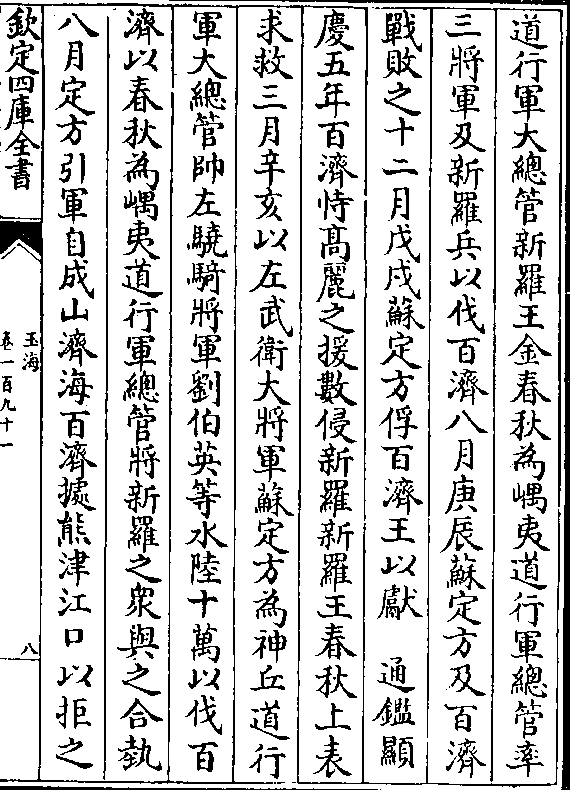 道行軍大總管新羅王金春秋為嵎夷道行軍總管率
三將軍及新羅兵以伐百濟八月庚辰蘇定方及百濟
戰敗之十二月戊戌蘇定方俘百濟王以獻　通鑑顯
慶五年百濟恃髙麗之援數侵新羅新羅王春秋上表
求救三月辛亥以左武衛大將軍蘇定方為神丘道行
軍大總管帥左驍騎將軍劉伯英等水陸十萬以伐百
濟以春秋為嵎夷道行軍總管將新羅之衆與之合勢
八月定方引軍自成山濟海百濟據熊津江口以拒之
欽定四庫全書
玉海
卷一百九十一
八